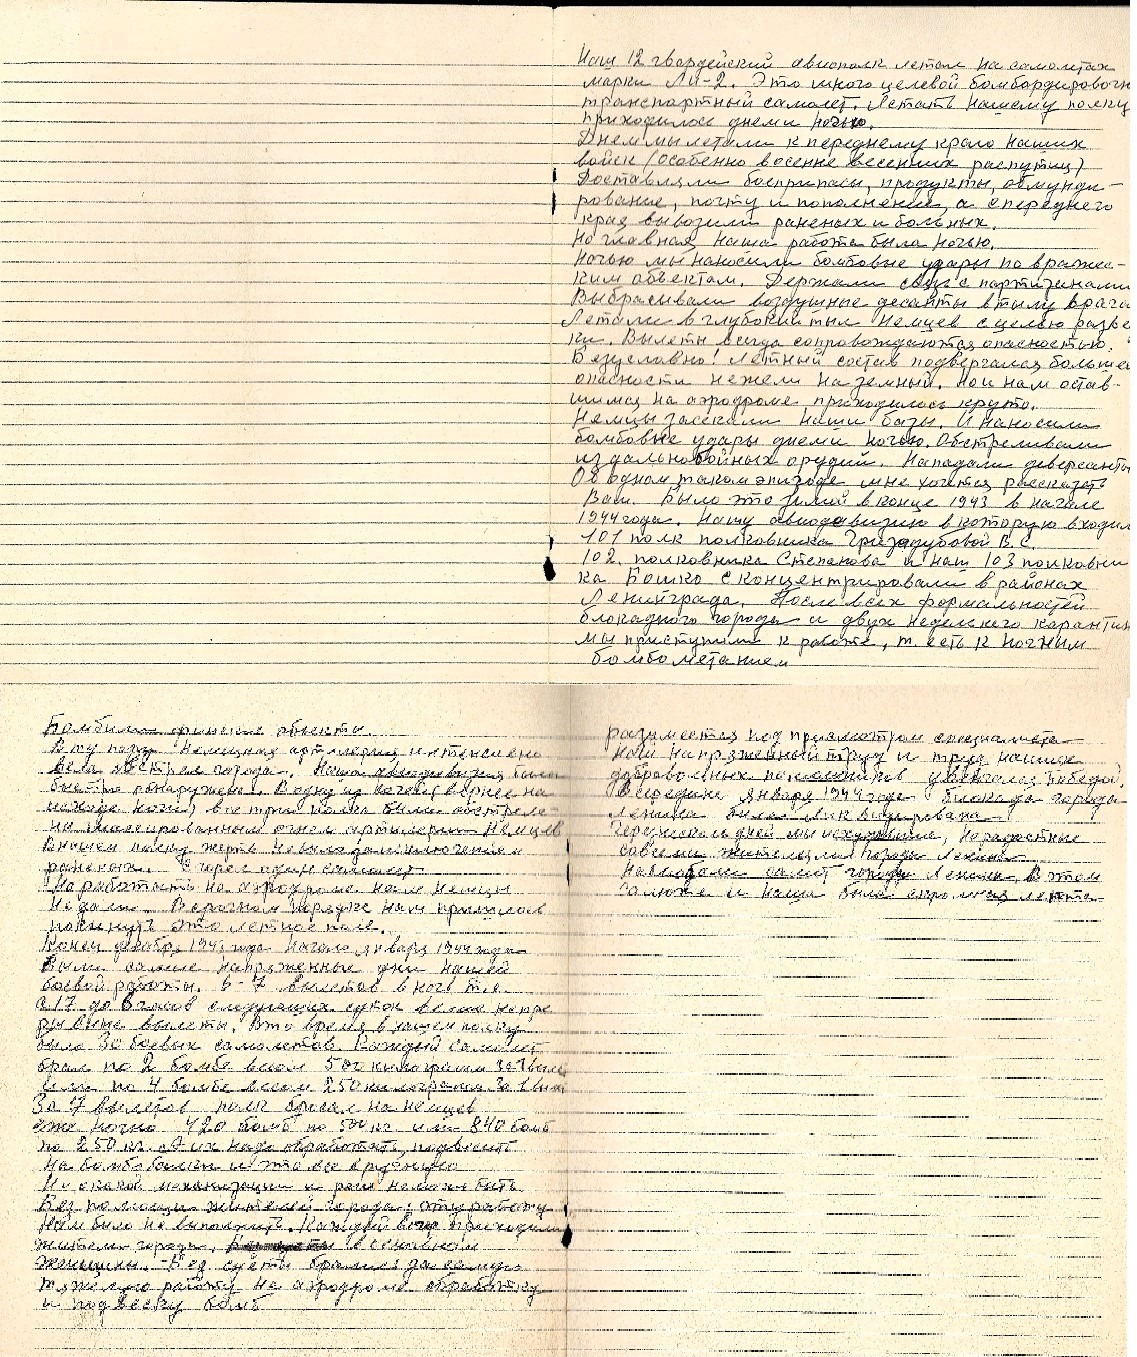 Наш 12 гвардейский авиополк летал на самолетах
марки Ли-2. Это многоцелевой бомбардировочн
транспортный самолет. Летать нашему полку
приходилос днем и ночью.
Днем мы летали к переднему краю наших
войск (особенно в осенне весенних распутиц)
Доставляли боеприпасы, продукты, обмунди-
рование, почту и пополнение, а с переднего
края вывозили раненых и больных.
Но главная наша работа была ночью.
Ночью мы наносили бомбовые удары по вражес-
ким объектам. Держали связ с партизанами
Выбрасывали воздушные десанты в тылу врага
Летали в глубокий тыл немцев с целью разве
ки. Вылеты всегда сопровождаются опасностью.
Безуславно! Летный состав подвергался большей
опасности нежели наземный. Но и нам остав-
шимся на аэродроме приходилось круто.
Немцы засекали наши базы. И наносили
бомбовые удары днем и ночью. Обстреливали
из дальнобойных орудий. Нападали диверсанты
Об одном таком эпизоде мне хочется рассказать
Вам. Было это зимой в конце 1943 в начале
1944 года. Нашу авиодивизию в которую входил
101 полк полковника Гризодубовой В.С.
102. полковника Степанова и наш 103 полковни
ка Бошко сконцентрировали в районах
Ленинграда. После всех формальностей
блокадного города и двух недельного карантин
мы приступили к работе, т. есть к ночным
бомбометанием
Бомбили финские объекты.
В ту пору немецкая артилерия интенсивно
вела обстрел города. Наша авиодивизия была
быстро обнаружена. В одну из ночей (вернее на
исходе ночи) все три полка были обстреле-
на массированным огнем артилерии немцев
В нашем полку жертв не было за исключением
раненых. Сгорел один самолет
Но работать на аэродроме нам немцы
не дали. В срочном порядке нам пришлось
покинуть это летное поле.
Конец декабря 1943 года Начало января 1944 года
Были самые напряженные дни нашей
боевой работы. 6-7 вылетов в ночь т.е.
с 17 до 8 часов следующих суток велись непре
рывные вылеты. В то время в нашем полку
было 30 боевых самолетов. Каждый самолет
брал по 2 бомбе весом 500 килограмм за 1 выле
или по 4 бомбе весом 250 килограмм за 1 выл
За 7 вылетов полк бросал на немцев
еже ночно 420 бомб по 500 кг. или 840 бомб
по 250 кг. А их надо обработать, подвесить
на бомбобалки и это все вручную
Ни о какой механизации и речи не может быть
Без помощи жителей города, эту работу
нам было не выполнить. Каждый вечер приходили
жители города, в основном
женщины. Без суеты брались за самую
тяжелую работу на аэродроме обработку
и подвеску бомб
разумеется под присмотром специалиста
Наш напряженный труд и труд наших
добровольных помощников увенчался Победой.
В середине января 1944 года блокада города
Ленина была ликвидирована.
Через несколь дней мы исхудавшие, но радостные
со всеми жителями города Ленина
Наблюдали салют городу Ленина, в этом
салюте и наша была скромная лепта